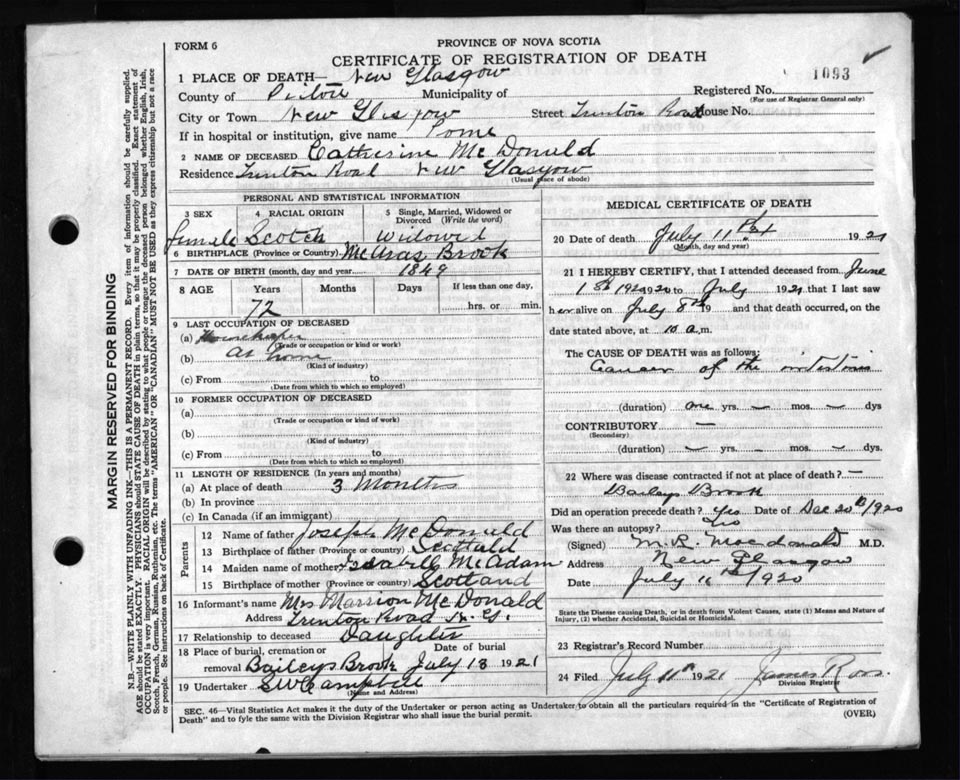 FORM 6
PROVINCE OF NOVA SCOTIA
CERTIFICATE OF REGISTRATION OF DEATH
1093
1 PLACE OF DEATH— New Glasgow
County of Pictou Municipality of Registered No.
(For use of Registrar General only)
City or Town New Glasgow Street Trenton Road House No.
If in hospital or institution, give name
2 NAME OF DECEASED Catherine McDonald
Residence Trenton Road New Glasgow
(Usual place of abode)
PERSONAL AND STATISTICAL INFORMATION
3 SEX 4 RACIAL ORIGIN 5 Single, Married, Widowed or Divorced (Write the word)
female Scotch Widowed
6 BIRTHPLACE (Province or Country) McAras Brook
7 DATE OF BIRTH (month, day and year) 1849
8 AGE Years Months Days If less than one day,
72 hrs. or min.
9 LAST OCCUPATION OF DECEASED
(a) Housekeeper
(Trade or occupation or kind or work)
(b) at home
(Kind of industry)
(c) From to
(Date from which to which so employed)
10 FORMER OCCUPATION OF DECEASED
(a)
(Trade or occupation or kind of work)
(b)
(Kind of industry)
(c) From to
(Date from which to which so employed)
11 LENGTH OF RESIDENCE (In years and months)
(a) At place of death 3 Months
(b) In province
(c) In Canada (if an immigrant)
Parents
12 Name of father Joseph McDonald
13 Birthplace of father (Province or country) Scotland
14 Maiden name of mother Isabell McAdam
15 Birthplace of mother (Province or country) Scotland
16 Informant's name Mrs Marrion McDonald
Address Trenton Road N. G.
17 Relationship to deceased Daughter
18 Place of burial, cremation or removal Date of burial
Baileys Brook July 13 1921
19 Undertaker S W Campbell
(Name and Address)
MEDICAL CERTIFICATE OF DEATH
20 Date of death July 11th 1921
(Month, day and year)
21 I HEREBY CERTIFY, that I attended deceased from June
1st 1920 to July 1921 that I last saw
her alive on July 8th 19 and that death occurred, on the
date stated above, at 10 a.m.
The CAUSE OF DEATH was as follows:
Cancer of the intestines
(duration) one yrs. — mos. — dys
CONTRIBUTORY —
(Secondary)
(duration) — yrs. — mos. — dys.
22 Where was disease contracted if not at place of death? —
Baileys Brook
Did an operation precede death? Yes Date of Dec 20th/1920
Was there an autopsy? No
(Signed) M. R. Macdonald M.D.
Address New Glasgow
Date July 11th/1920
State the Disease causing Death, or in death from Violent Causes, state (1) Means and Nature of
Injury, (2) whether Accidental, Suicidal or Homicidal.
23 Registrar's Record Number
24 Filed July 11th 1921 James Ross.
Division Registrar
SEC. 46—Vital Statistics Act makes it the duty of the Undertaker or person acting as Undertaker to obtain all the particulars required in the "Certificate of Registration of
Death" and to fyle the same with the Division Registrar who shall issue the burial permit.
(OVER)
MARGIN RESERVED FOR BINDING
N.B.—WRITE PLAINLY WITH UNFADING INK—THIS IS A PERMANENT RECORD. Every item of information should be carefully supplied.
AGE should be stated EXACTLY. PHYSICIANS should STATE CAUSE OF DEATH in plain terms, so that it may be properly classified. Exact statement of
OCCUPATION is very important. RACIAL ORIGIN will be described by stating to what people or tongue the deceased person belonged whether English, Irish,
Scotch, French, German, Russian, Ruthenian, etc. The terms "AMERICAN" OR "CANADIAN" MUST NOT BE USED as they express citizenship but not a race
or people. See instructions on back of Certificate.